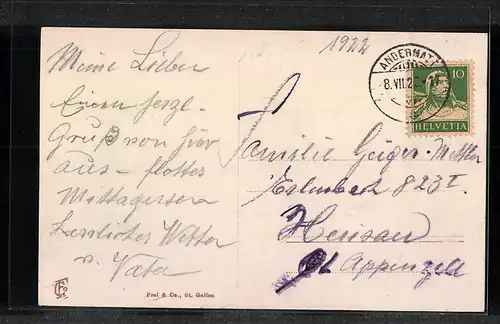 1922
Meine Lieber
Einen herzl.
Gruß von hier
aus - flottes
Mittagessen
herrliches Wetter
v. Vater
ANDERMATT
8.VII.2
10
HELVETIA
Familie Geiger-Mettler
823 I
Herisau
Ct Appenzell
Frei & Co., St. Gallen